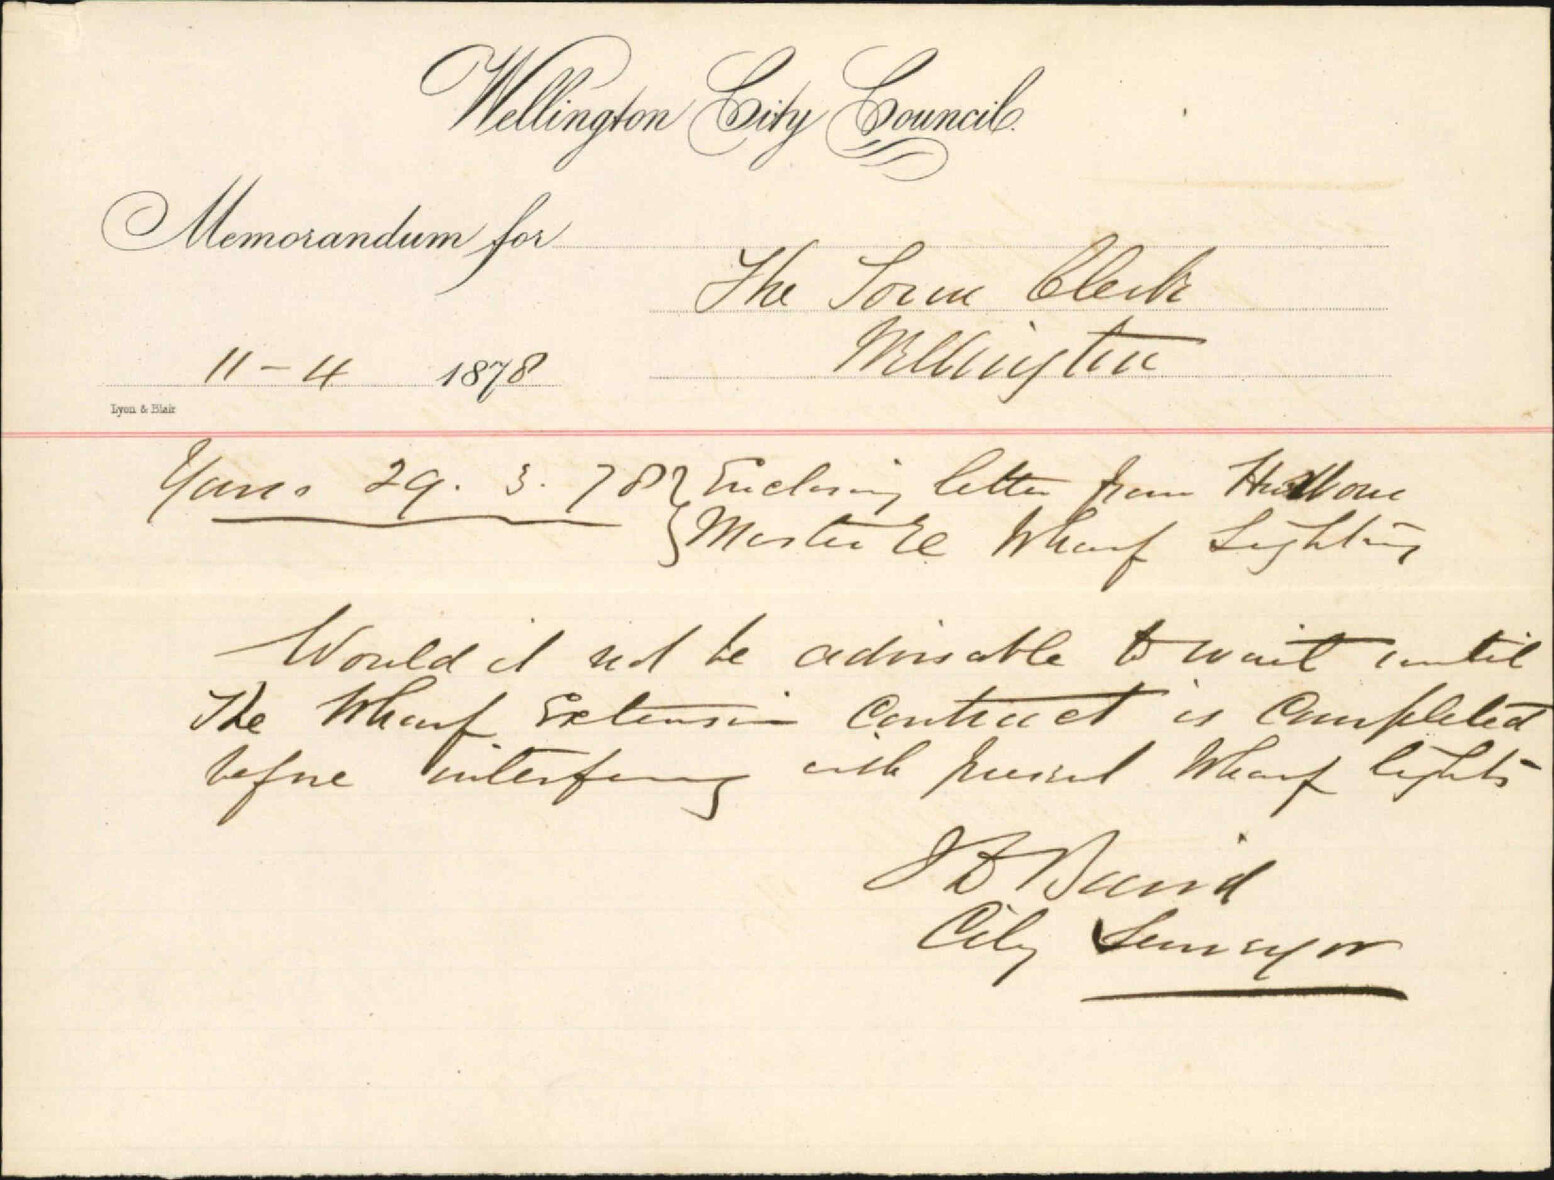 Wellington City Council.
Memorandum for
The Town Clerk
Wellington
11-4 1878
Lyon & Blair
Yours 29. 3. 78 } Enclosing letter from Harbour
Master re Wharf Lighting
Would it not be advisable to wait until
the Wharf Extension Contract is Completed
before interfering with present Wharf lights
J D Baird
City Surveyor